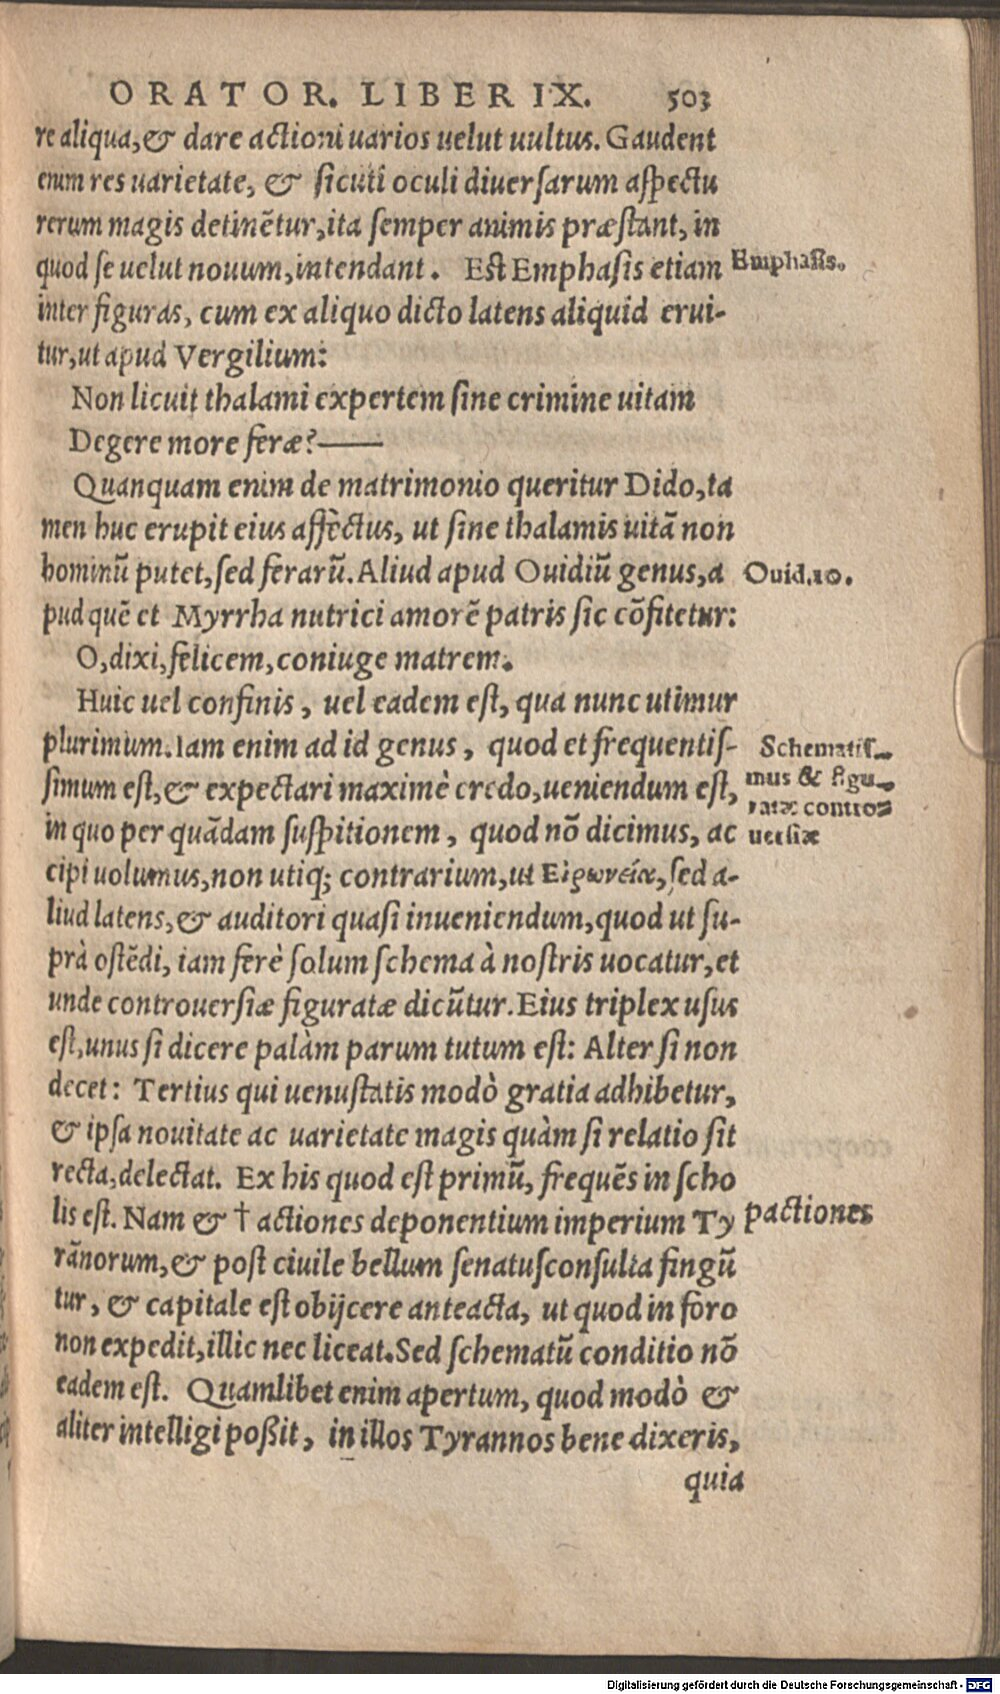 ORATOR. LIBER IX. 503
re aliqua, & dare actioni uarios uelut uultus. Gaudent
enim res uarietate, & sicuti oculi diuersarum aspectu
rerum magis detinẽtur, ita semper animis præstant, in
quod se uelut nouum, intendant. Est Emphasis etiam
Emphasis.
inter figuras, cum ex aliquo dicto latens aliquid erui-
tur, ut apud Vergilium:
Non licuit thalami expertem sine crimine uitam
Degere more feræ?——
Quanquam enim de matrimonio queritur Dido, ta
men huc erupit eius affèctus, ut sine thalamis uitã non
hominũ putet, sed ferarũ. Aliud apud Ouidiũ genus, a
Ouid. 10.
pud quẽ et Myrrha nutrici amorẽ patris sic cõfitetur:
O, dixi, felicem, coniuge matrem.
Huic uel confinis, uel eadem est, qua nunc utimur
plurimum. Iam enim ad id genus, quod et frequentis-
simum est, & expectari maximè credo, ueniendum est,
in quo per quãdam suspitionem, quod nõ dicimus, ac
Schematis-
mus & figu-
ratæ contro-
uersiæ
cipi uolumus, non utiq; contrarium, ut Εἰρωνείᾳ, sed a-
liud latens, & auditori quasi inueniendum, quod ut su-
prà ostẽdi, iam ferè solum schema à nostris uocatur, et
unde controuersiæ figuratæ dicũtur. Eius triplex usus
est, unus si dicere palàm parum tutum est: Alter si non
decet: Tertius qui uenustatis modò gratia adhibetur,
& ipsa nouitate ac uarietate magis quàm si relatio sit
recta, delectat. Ex his quod est primũ, frequẽs in scho
lis est. Nam & † actiones deponentium imperium Ty
pactiones
rãnorum, & post ciuile bellum senatusconsulta fingũ
tur, & capitale est obijcere anteacta, ut quod in foro
non expedit, illic nec liceat. Sed schematũ conditio nõ
eadem est. Quamlibet enim apertum, quod modò &
aliter intelligi poßit, in illos Tyrannos bene dixeris,
quia
Digitalisierung gefördert durch die Deutsche Forschungsgemeinschaft - DFG